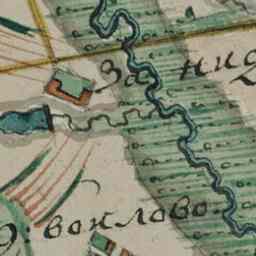 За нид
Э: воклово.